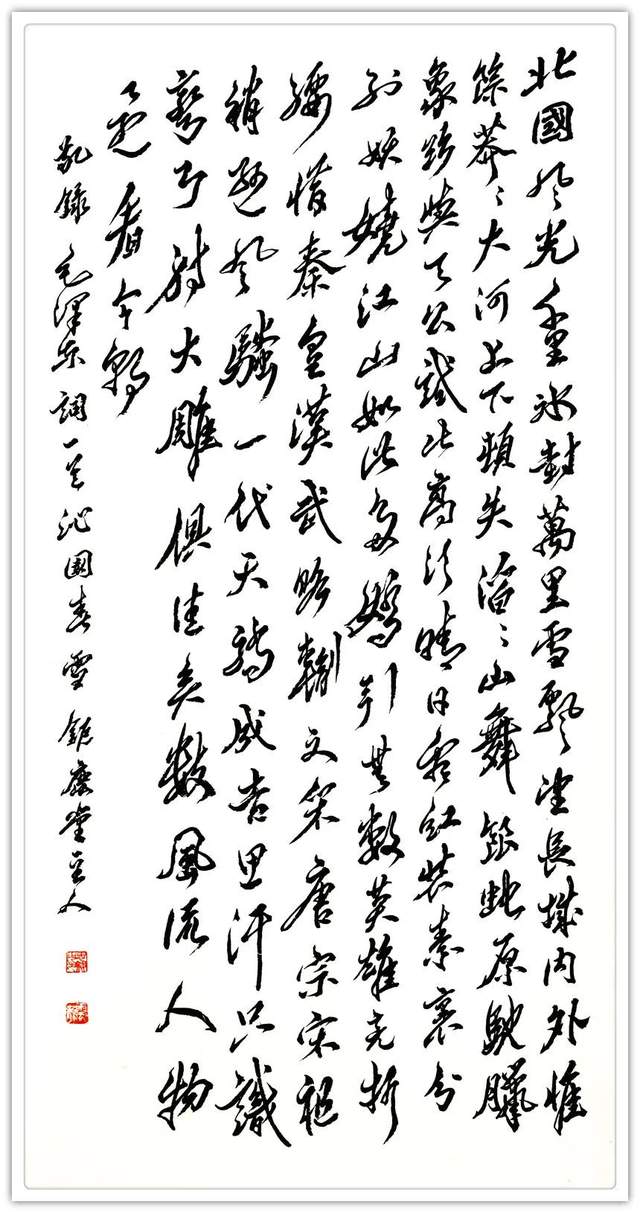 北國風光千里冰封萬里雪飄望長城內外惟
餘莽〻大河上下頓失滔〻山舞銀蛇原馳臘
象欲與天公試比高須晴日看紅裝素裹分
外妖嬈江山如此多嬌引無數英雄競折
腰惜秦皇漢武略輸文采唐宗宋祖
稍遜風騷一代天驕成吉思汗只識
彎弓射大雕俱往矣數風流人物
還看今朝
敬錄毛澤東詞一首沁園春雪 堂主人